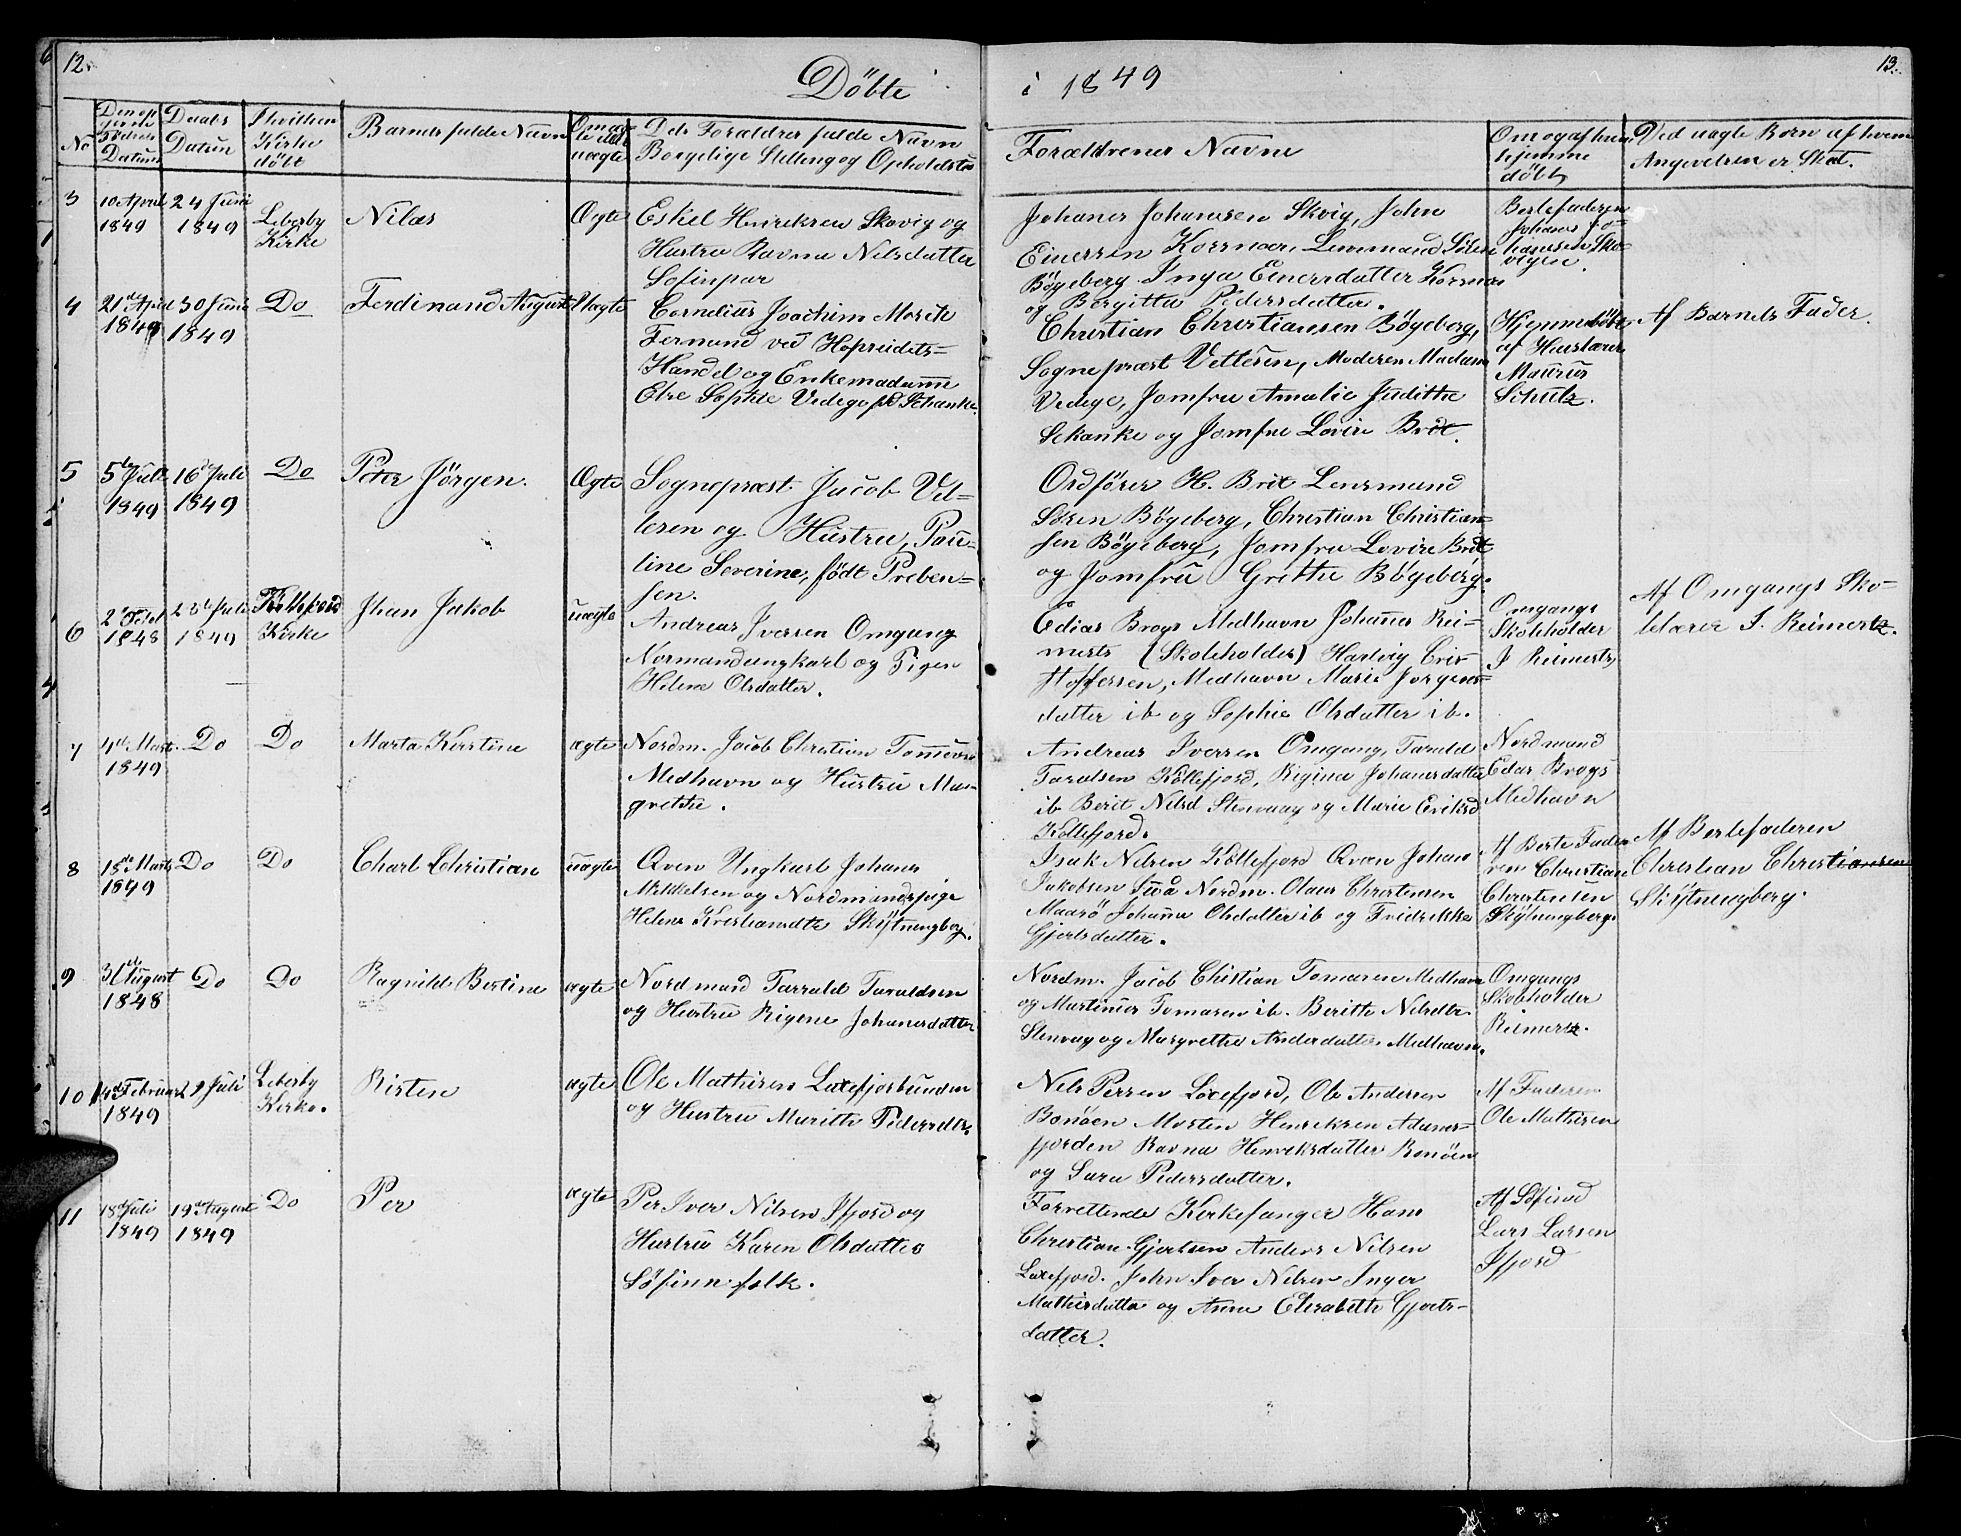 12.
Döbte
i 1849
13.
No
Datum
Daabs
Datum
I hvilken
Kirke
döbt
Barnets fulde Navn
uægte
Dets Forældres fulde Navn
Borgelige Stilling og Opholdsted
Forældrenes Navne
Om og af hvem
hjemme
döbt
Ved uægte Born af hvem
Angivelsen er Skeet.
3
10 April
1849
24 Juni
1849
Lebesby
Kirke
Nilas
Ægte
Eskel Henriksen Skovig og
Hustru Ravna Nilsdatter
Söfinpar
Johanes Johannesen Skvig, John
Einersen Korsnæs, Lensmand Sören
Bögeberg. Inga Einersdatter Korsnæs
og Bergitta Pedersdatter.
Johanes Jo-
hannesen Sko-
vigen.
4
21de April
1849
30 Juni
1849
Do
Ferdinand August
Uægte
Cornelius Joachim Morits
Fernand ved Hopseidets-
Handel og Enkemadame
Else Sophie Vedege föd Schanke.
Christian Christiansen Bögeberg,
Sognepræst Vettesen, Moderen Madam
Vedege, Jomfru Amalie Judithe
Schanke og Jomfru Lovise Brdt.
Hjemmedöbt
af Huuslærer
Maurus
Schulz.
Af Barnets Fader.
5
5de Juli
1849
16de Juli
1849
Do
Peter Jörgen.
Ægte
Sognepræst Jacob Vet-
tesen og Hustru, Pau-
line Severine, födt Preben-
sen.
Ordförer H. Brdt Lensmand
Sören Bögeberg, Christian Christian-
sen Bögeberg, Jomfru Lovise Brdt
og Jomfru Grethe Bögeberg.
6
1848
23de Juli
1849
Kjöllefjord
Kirke
Jhan Jakob
uægte
Andreas Iversen Omgang
Normandsungkarl og Pigen
Helene Olsdatter.
Edias Brogs Medhavn Johannes Rei-
merts (Skoleholder) Hartvig Cris-
toffersen, Medhavn Marie Jorgens-
datter ib og Sophie Olsdatter ib.
Omgangs
Skoleholder
J Reimerts
Af Omgangs Sko-
lelærer J. Reimertz.
7
4de Marts
1849
Do
Do
Marta Kirstine
ægte
Nordm. Jacob Christian Tomesen
Medhavn og Hustru Mar-
grethe.
Andreas Iversen Omgang, Tarald
Taralsen Köllefjord, Rigina Johanesdatter
ib Berit Nilsd Stenvaag og Marie Eriksd
Köllefjord.
Nordmand
Edas Brogs
Medhavn
8
15de Marts
1849
Do
Do
Charl Christian
uægte
Qven Ungkarl Johanes
Mikkelsen og Nordmandspige
Helene Kristiansdtr Skjötningberg.
Isak Nilsen Köllefjord Qvæn Johan
Jakobsen Nordm. Olaus Christensen
Maasö Johanne Olsdatter ib og Fridrikke
Gjertsdatter.
Af Borte Fade-
ren Christian
Christensen
Skjötningberg.
Af Bortefaderen
Christian Christiansen
Skjötningberg.
9
31de August
1848
Do
Do
Ragnilde Bertine
ægte
Nordmand Tarrald Taraldsen
og Hustru Rigine Johanesdatter
Nordm. Jacob Christian Tomasen Medhavn
og Martinus Tomasen ib. Berithe Nilsdtr
Stenvaag og Margrethe Andersdatter Medhavn.
Omgangs
Skoleholder
Reimertz.
10
14de Februar
1849
1 Juli
Lebesby
Kirke.
Kisten
ægte
Ole Mathisen Laxefjorbunden
og Hustru Marithe Pidersdtr.
Nels Persen Laxefjord, Ole Andersen
Bonöen Morten Henriksen Adams-
fjorden Ravna Henriksdatter Bonöen
og Sara Pedersdatter.
Af Faderen
Ole Mathisen
11
18de Juli
1849
19de August
1849
Do
Per
ægte
Per Iver Nilsen Ifjord og
Hustru Karen Olsdatter
Söfinnfolk.
Forrettende Kirkesanger Hans
Christian Gjertsen Anders Nilsen
Laxefjord. John Iver Nilsen Inger
Mathisdatter og Anne Elisabeth Gjerts-
datter.
Af Söfind
Lars Larsen
Ifjord